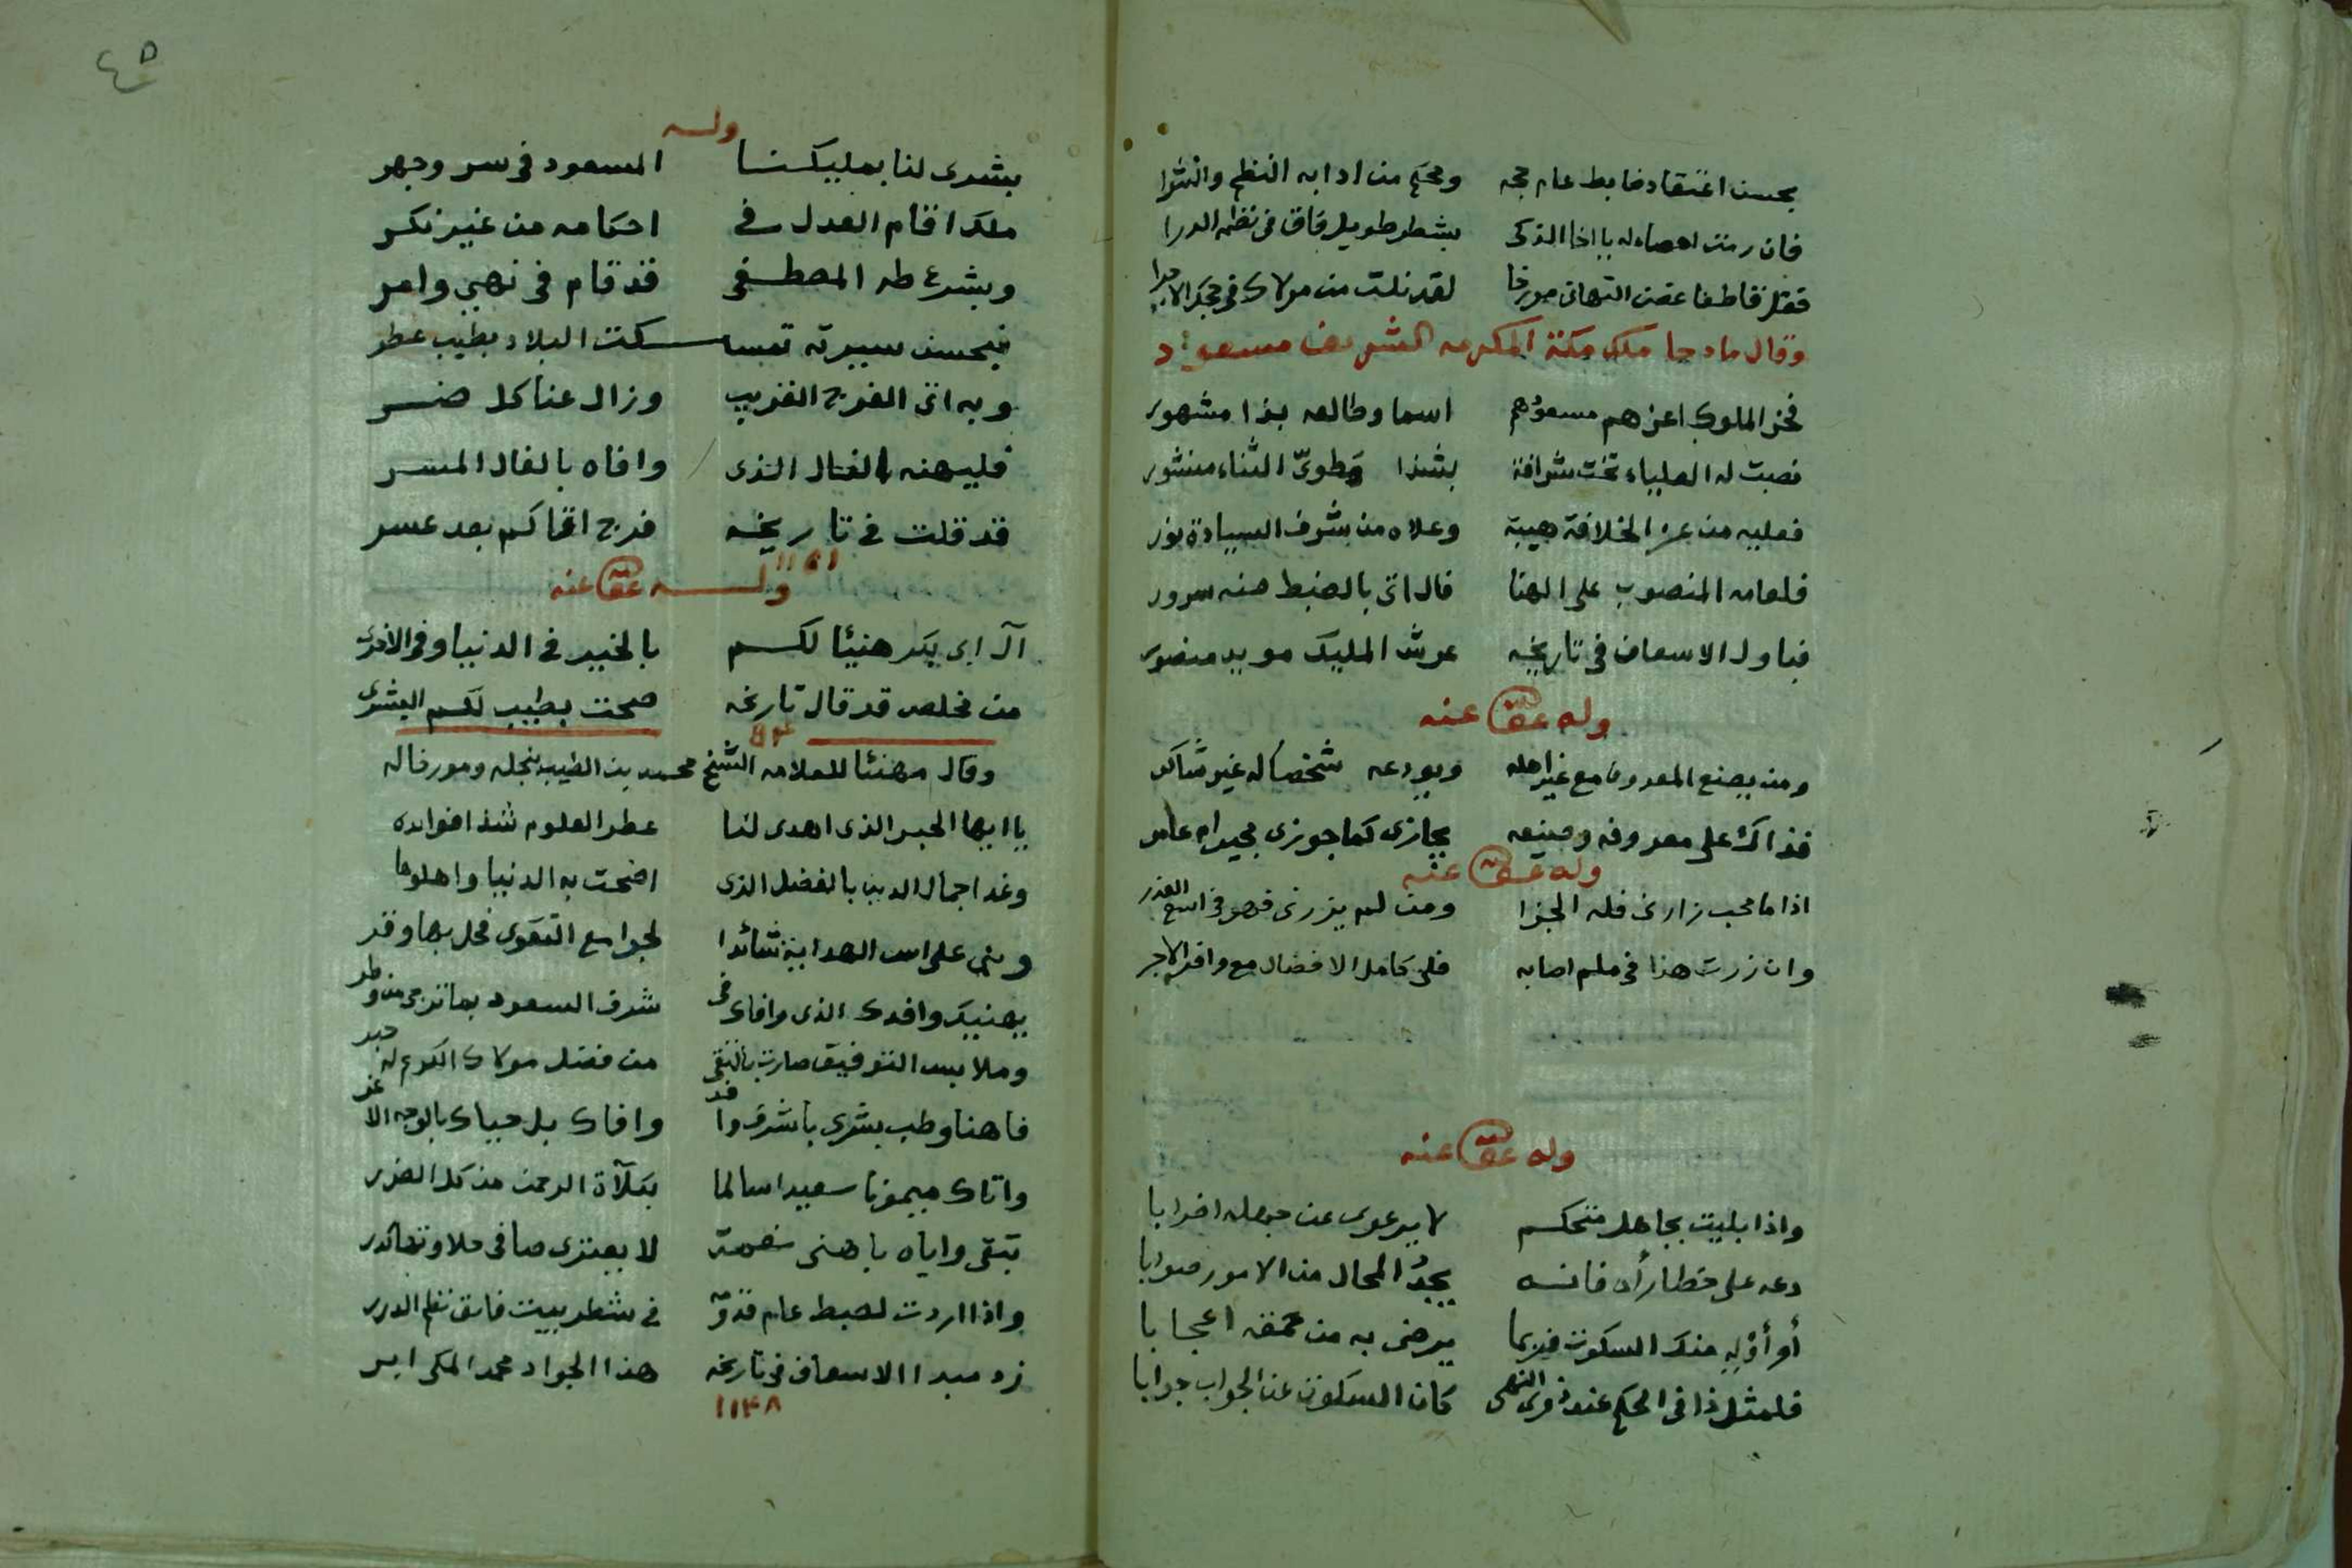 بحسن اعتقاد ضابط عام حجه ومحكم من ادابه النظم والنثرا
فان رمت احصاء له يا اخا الذكى بشطر طويل فاق فى نظمه الدرا
فقل قاطفا غصن التهانى مورخا لقد نلت من مولاك فى حجك الاجرا
وقال مادحا ملك مكة المكرمه الشريف مسعود
فخر الملوك اعزهم مسعودهم اسما وطالعه بذا مشهور
نصبت له العلياء تخت شرافة بشذا مطوىّ الثناء منشور
فعليه من عز الخلافة هيبة وعلاه من شرف السيادة نور
فلعامه المنصوب على الهنا فال اتى بالضبط منه سرور
فباول الاسعاف فى تاريخه عرش المليك مويد منصور
وله عفى عنه
ومن يصنع المعروف مع غير اهله ويودعه شخصا له غير شاكر
فذاك على معروفه وصنيعه يجازى كما جوزى مجير ام عامر
وله عفى عنه
اذا ما محب زارنى فله الجزا ومن لم يزرنى فهو فى اوسع العذر
وان زرت هذا فى ملم اصابه فلى كامل الافضال مع وافر الاجر
وله عفى عنه
واذا بليت بجاهل متحكم لا يرعوى عن جهله اضرابا
دعه على خطا رأه فانه يجدُ المحال من الامور صوابا
أو أوْلِهِ منك السكوت فربما يرضى به من حمقه اعجابا
فلمثل ذا فى الحكم عند ذوى النهى كان السكوت عن الجواب جوابا
٤٥
وله
بشرى لنا بمليكنا المسعود فى سر وجهر
ملك اقام العدل فى احكامه من غير نكر
وبشرع طه المصطفى قد قام فى نهى وامر
فبحسن سيرته تمسكت البلاد بطيب عطر
وبه اتى الفرج القريب وزال عنا كل ضر
فليهنه الفال الذى وافاه بالفال المسر
قد قلت فى تاريخه فرج اتاكم بعد عسر
وله عفى عنه
آل ابى بكر هنيئا لكم بالخير فى الدنيا وفى الاخرى
من مخلص قد قال تاريخه صحت بطيب لكم البشرى
وقال مهنئا للعلامه الشيخ محمد بن الطيب بنجله ومورخا له
يا ايها الحبر الذى اهدى لنا عطر العلوم شذا فوايده
وغدا جمال الدين بالفضل الذى اضحت به الدنيا واهلوها
وبنى على اس الهداية شائدا لجوامع التقوى فحل بها وقر
يهنيك وافدك الذى وافاك فى شرف السعود بما ترجى من وطر
وملابس التوفيق صارت بالتقى من فضل مولاك الكريم له حبر
فاهنا وطب بشرى باشرف وا فد وافاك بل حياك بالوجه الا غر
واتاك ميمونا سعيدا سالما بكلآة الرحمن من كل الضرر
تبقى واياه باهنى نعمة لا يعترى صافى حلاوتها كدر
واذا اردت لضبط عام قدومه فى شطر بيت فاق نظم الدرر
زد مبدا الاسعاف فى تاريخه هذا الجواد محمد المكى ابر
١١٤٨